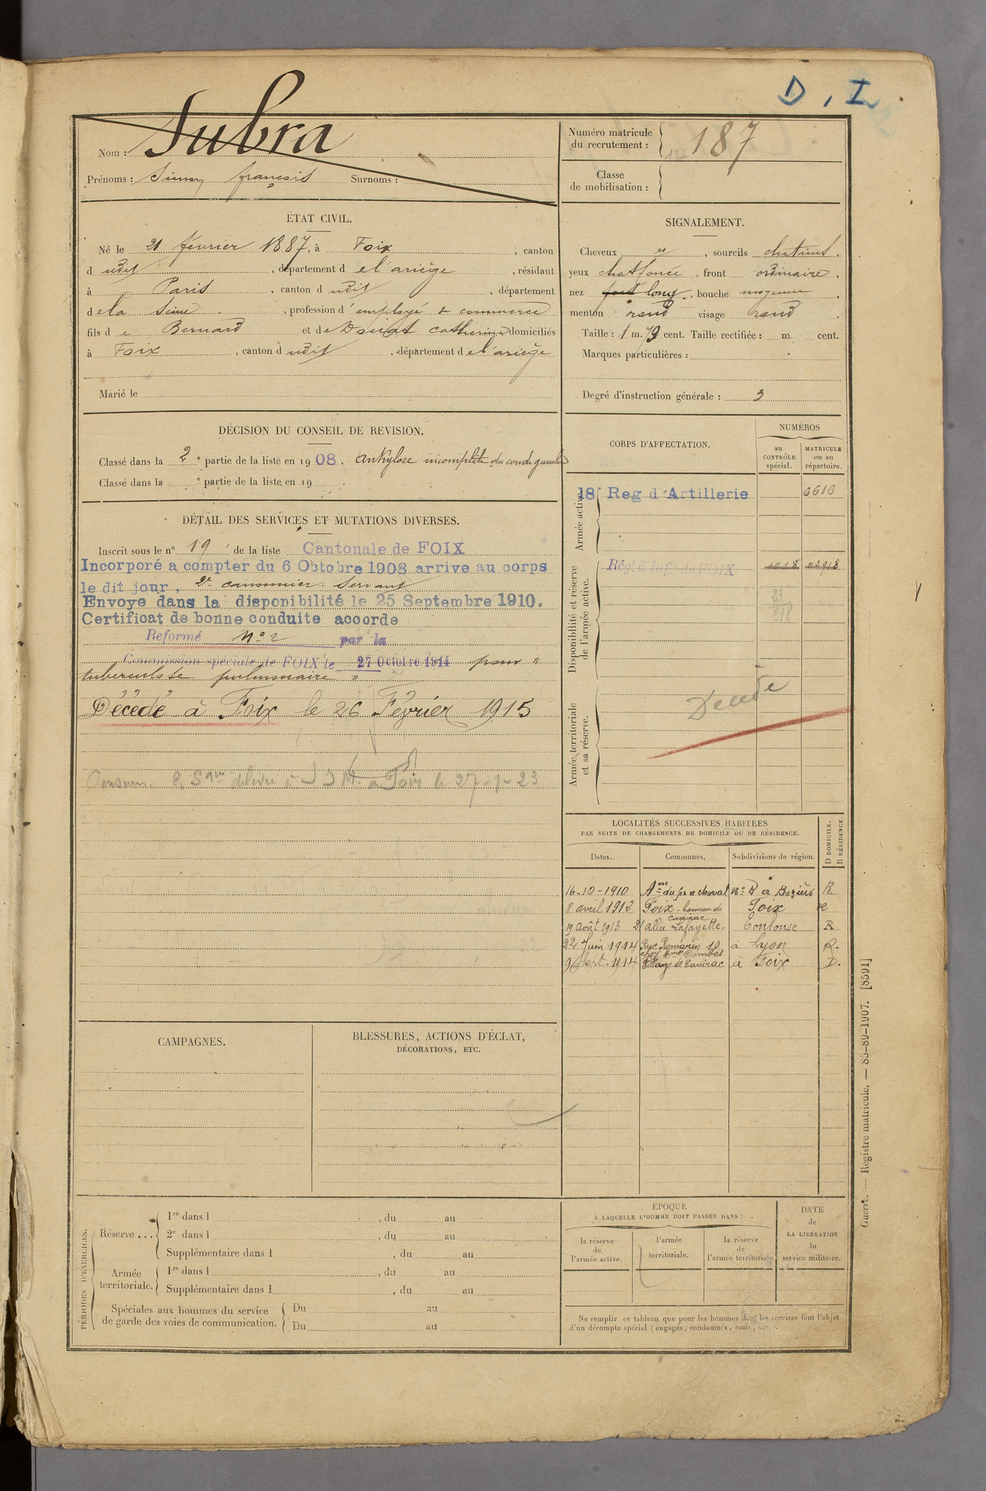 D. I.
Nom : Subra
Prénoms : Simon françois Surnoms :
Numéro matricule du recrutement : 187
Classe de mobilisation :
ÉTAT CIVIL.
Né le 21 février 1887, à Foix, canton
dudit, département de l'ariège, résidant
à Paris, canton dudit, département
de la Seine, profession d'employé de commerce
fils de Bernard et de Douat Catherine domiciliés
à Foix, canton dudit, département de l'ariège
Marié le
SIGNALEMENT.
Cheveux et, sourcils chatains,
yeux chat foncé, front ordinaire,
nez fort long, bouche moyenne
menton rond visage rond
Taille : 1 m. 73 cent. Taille rectifiée : m. cent.
Marques particulières :
Degré d'instruction générale : 3
DÉCISION DU CONSEIL DE REVISION.
Classé dans la 2e partie de la liste en 1908. ankylose incomplète du coude gauche
Classé dans la e partie de la liste en 19
DÉTAIL DES SERVICES ET MUTATIONS DIVERSES.
Inscrit sous le n° 19 de la liste Cantonale de FOIX
Incorporé a compter du 6 Octobre 1908 arrive au corps
le dit jour, 2e canonnier servant
Envoye dans la disponibilité le 25 Septembre 1910.
Certificat de bonne conduite accorde
Reformé N° 2 par la
Commission spéciale de FOIX le 27 Octobre 1914 pour "
tuberculose pulmonaire "
Décédé à Foix le 26 Février 1915
à Foix le 27-1-23
CORPS D'AFFECTATION.
NUMÉROS
au CONTRÔLE spécial.
MATRICULE ou au répertoire.
Armée active.
18e Reg d'Artillerie 6616
Disponibilité et réserve de l'armée active.
Rég d'Inf de FOIX
Armée territoriale et sa réserve.
Décédé
LOCALITÉS SUCCESSIVES HABITÉES
PAR SUITE DE CHANGEMENTS DE DOMICILE OU DE RÉSIDENCE.
Dates. Communes. Subdivisions de région. D DOMICILE. R RÉSIDENCE
16-10-1910 à Beziers R
8 avril 1912 Foix hameau de Cadirac Foix R
19 août 1913 21 allée Lafayette Toulouse R
22 Juin 1914 Rue Romarin 10 à Lyon R.
9 Sept. 1914 Village de Cadirac à Foix D.
CAMPAGNES.
BLESSURES, ACTIONS D'ÉCLAT,
DÉCORATIONS, ETC.
PÉRIODES D'EXERCICES.
Réserve ... 1re dans l , du au
2e dans l , du au
Supplémentaire dans l , du au
Armée territoriale. 1re dans l , du au
Supplémentaire dans l , du au
Spéciales aux hommes du service de garde des voies de communication. Du au
Du au
ÉPOQUE
À LAQUELLE L'HOMME DOIT PASSER DANS :
la réserve de l'armée active.
l'armée territoriale.
la réserve de l'armée territoriale.
DATE de LA LIBÉRATION du service militaire.
Ne remplir ce tableau que pour les hommes dont les services font l'objet
d'un décompte spécial (engagés, condamnés, omis,
Guerre. — Registre matricule. — 85-89-1907. [8591]